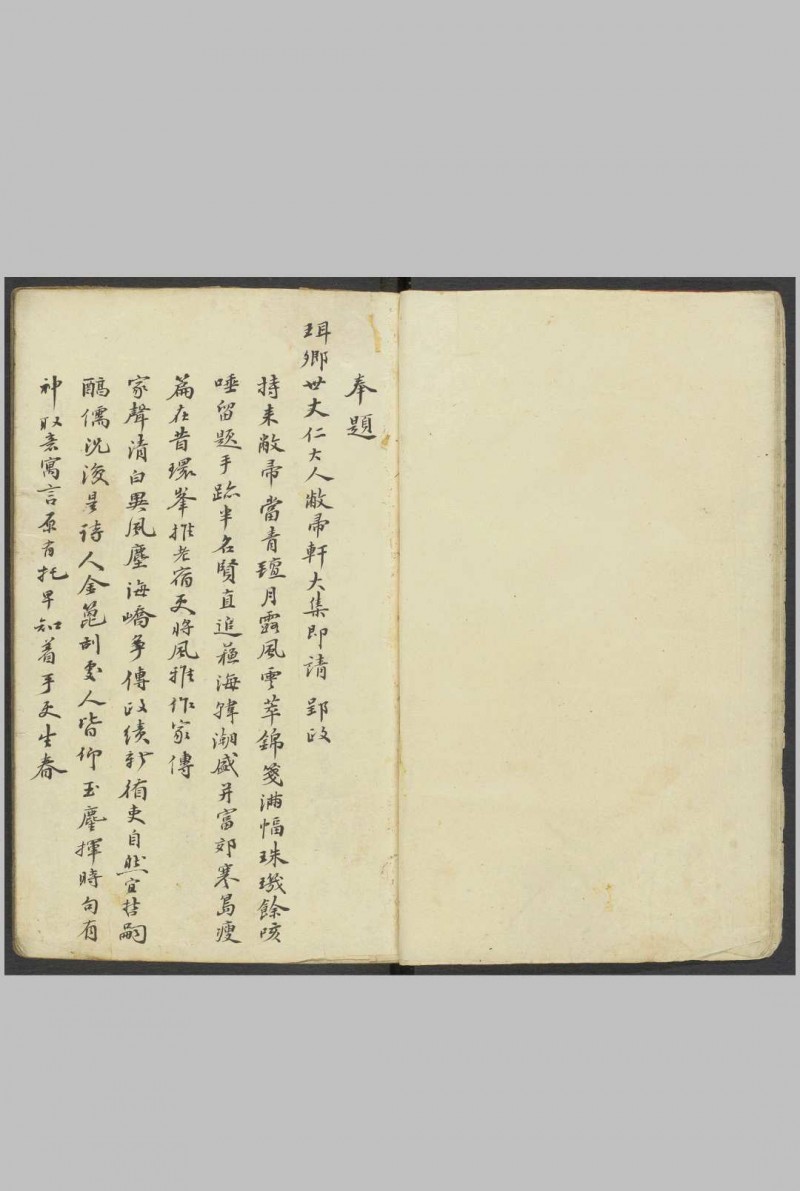 奉題
珥卿世丈仁大人敝帚軒大集即請 郢政
持来敝帚當青氊月露風雲萃錦箋滿幅珠璣餘咳
唾留題手跡半名賢直追蘓海韓潮盛并富郊寒島瘦
篇在昔環峯推老宿更將風雅作家傳
家聲清白異風塵海嶠争傳政績新循吏自然宜喆嗣
醇儒況復是詩人金篦刮處人皆仰玉麈揮時句有
神取意寓言原有托早知着手更生春